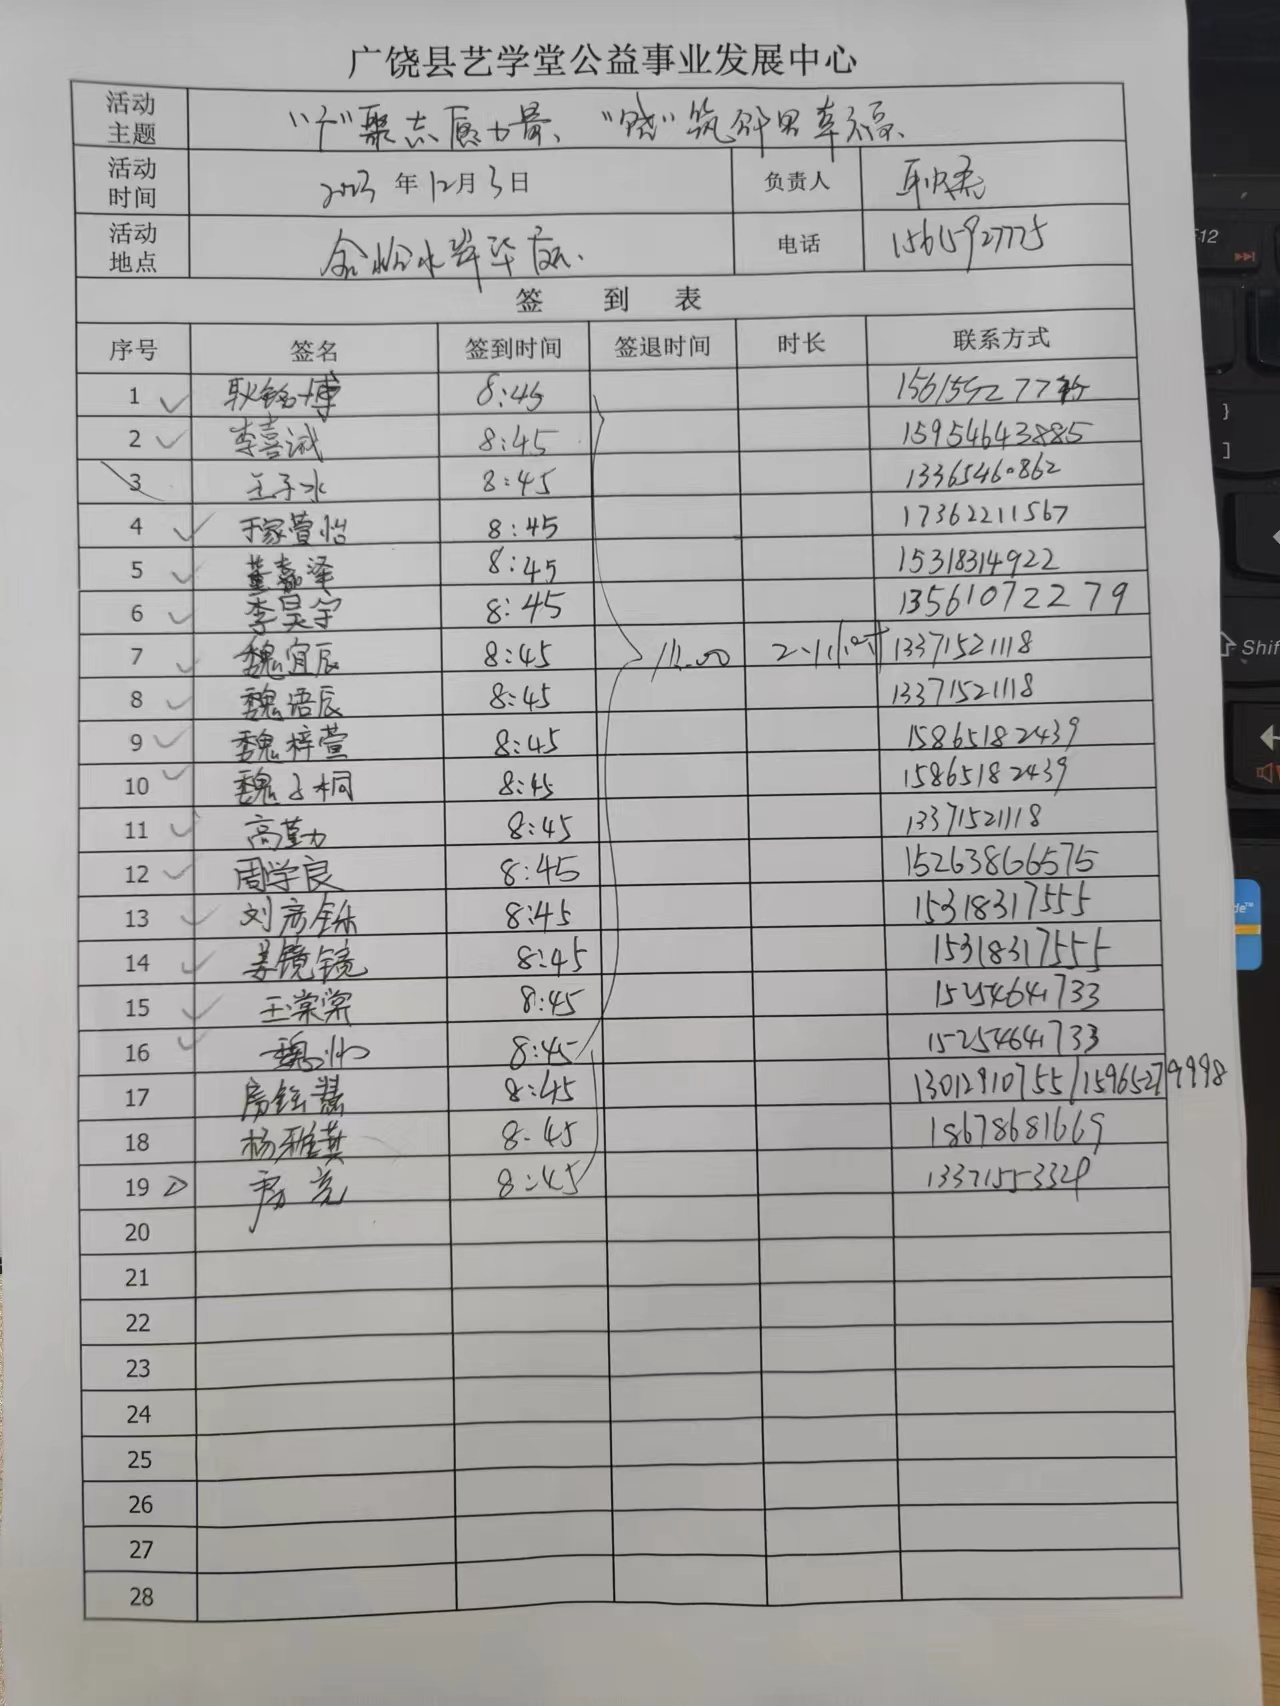 广饶县艺学堂公益事业发展中心
活动主题 "广"聚志愿力量、"饶"筑邻里幸福、
活动时间 2023年12月3日 负责人
活动地点 电话 15615927775
签 到 表
序号 签名 签到时间 签退时间 时长 联系方式
1 耿铭博 8:45
2 李喜诚 8:45 15954643885
3 王子水 8:45 13365460862
4 于家萱怡 8:45 17362211567
5 董嘉泽 8:45 15318314922
6 李昊宇 8:45 13561072279
7 魏宜辰 8:45 11:00 2小时 13371521118
8 魏语辰 8:45 13371521118
9 魏梓萱 8:45 15865182439
10 魏子桐 8:45 15865182439
11 高勤 8:45 13371521118
12 周学良 8:45 15263866575
13 刘彦铄 8:45 15318317555
14 姜镜镜 8:45 15318317555
15 王棠棠 8:45 15254641733
16 魏帅 8:45 15254641733
17 房钰慧 8:45 13012910755/15965279998
18 杨雅茜 8.45 18678681669
19 房亮 8:45 13371553329
20
21
22
23
24
25
26
27
28
F12
}
]
Shift